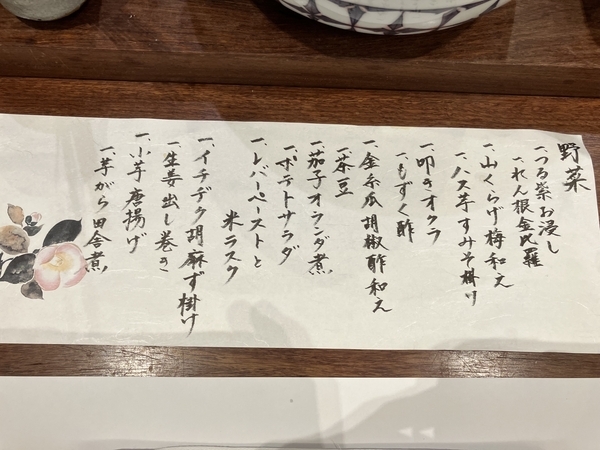 野菜
一、つる紫お浸し
一、れん根金比羅
一、山くらげ梅和え
一、ハス芋すみそ掛け
一、叩きオクラ
一、もずく酢
一、金糸瓜胡椒酢和え
一、茶豆
一、茄子オランダ煮
一、ポテトサラダ
一、レバーペーストと
米ラスク
一、イチヂク胡麻ず掛け
一、生姜出し巻き
一、小芋唐揚げ
一、芋がら田舎煮